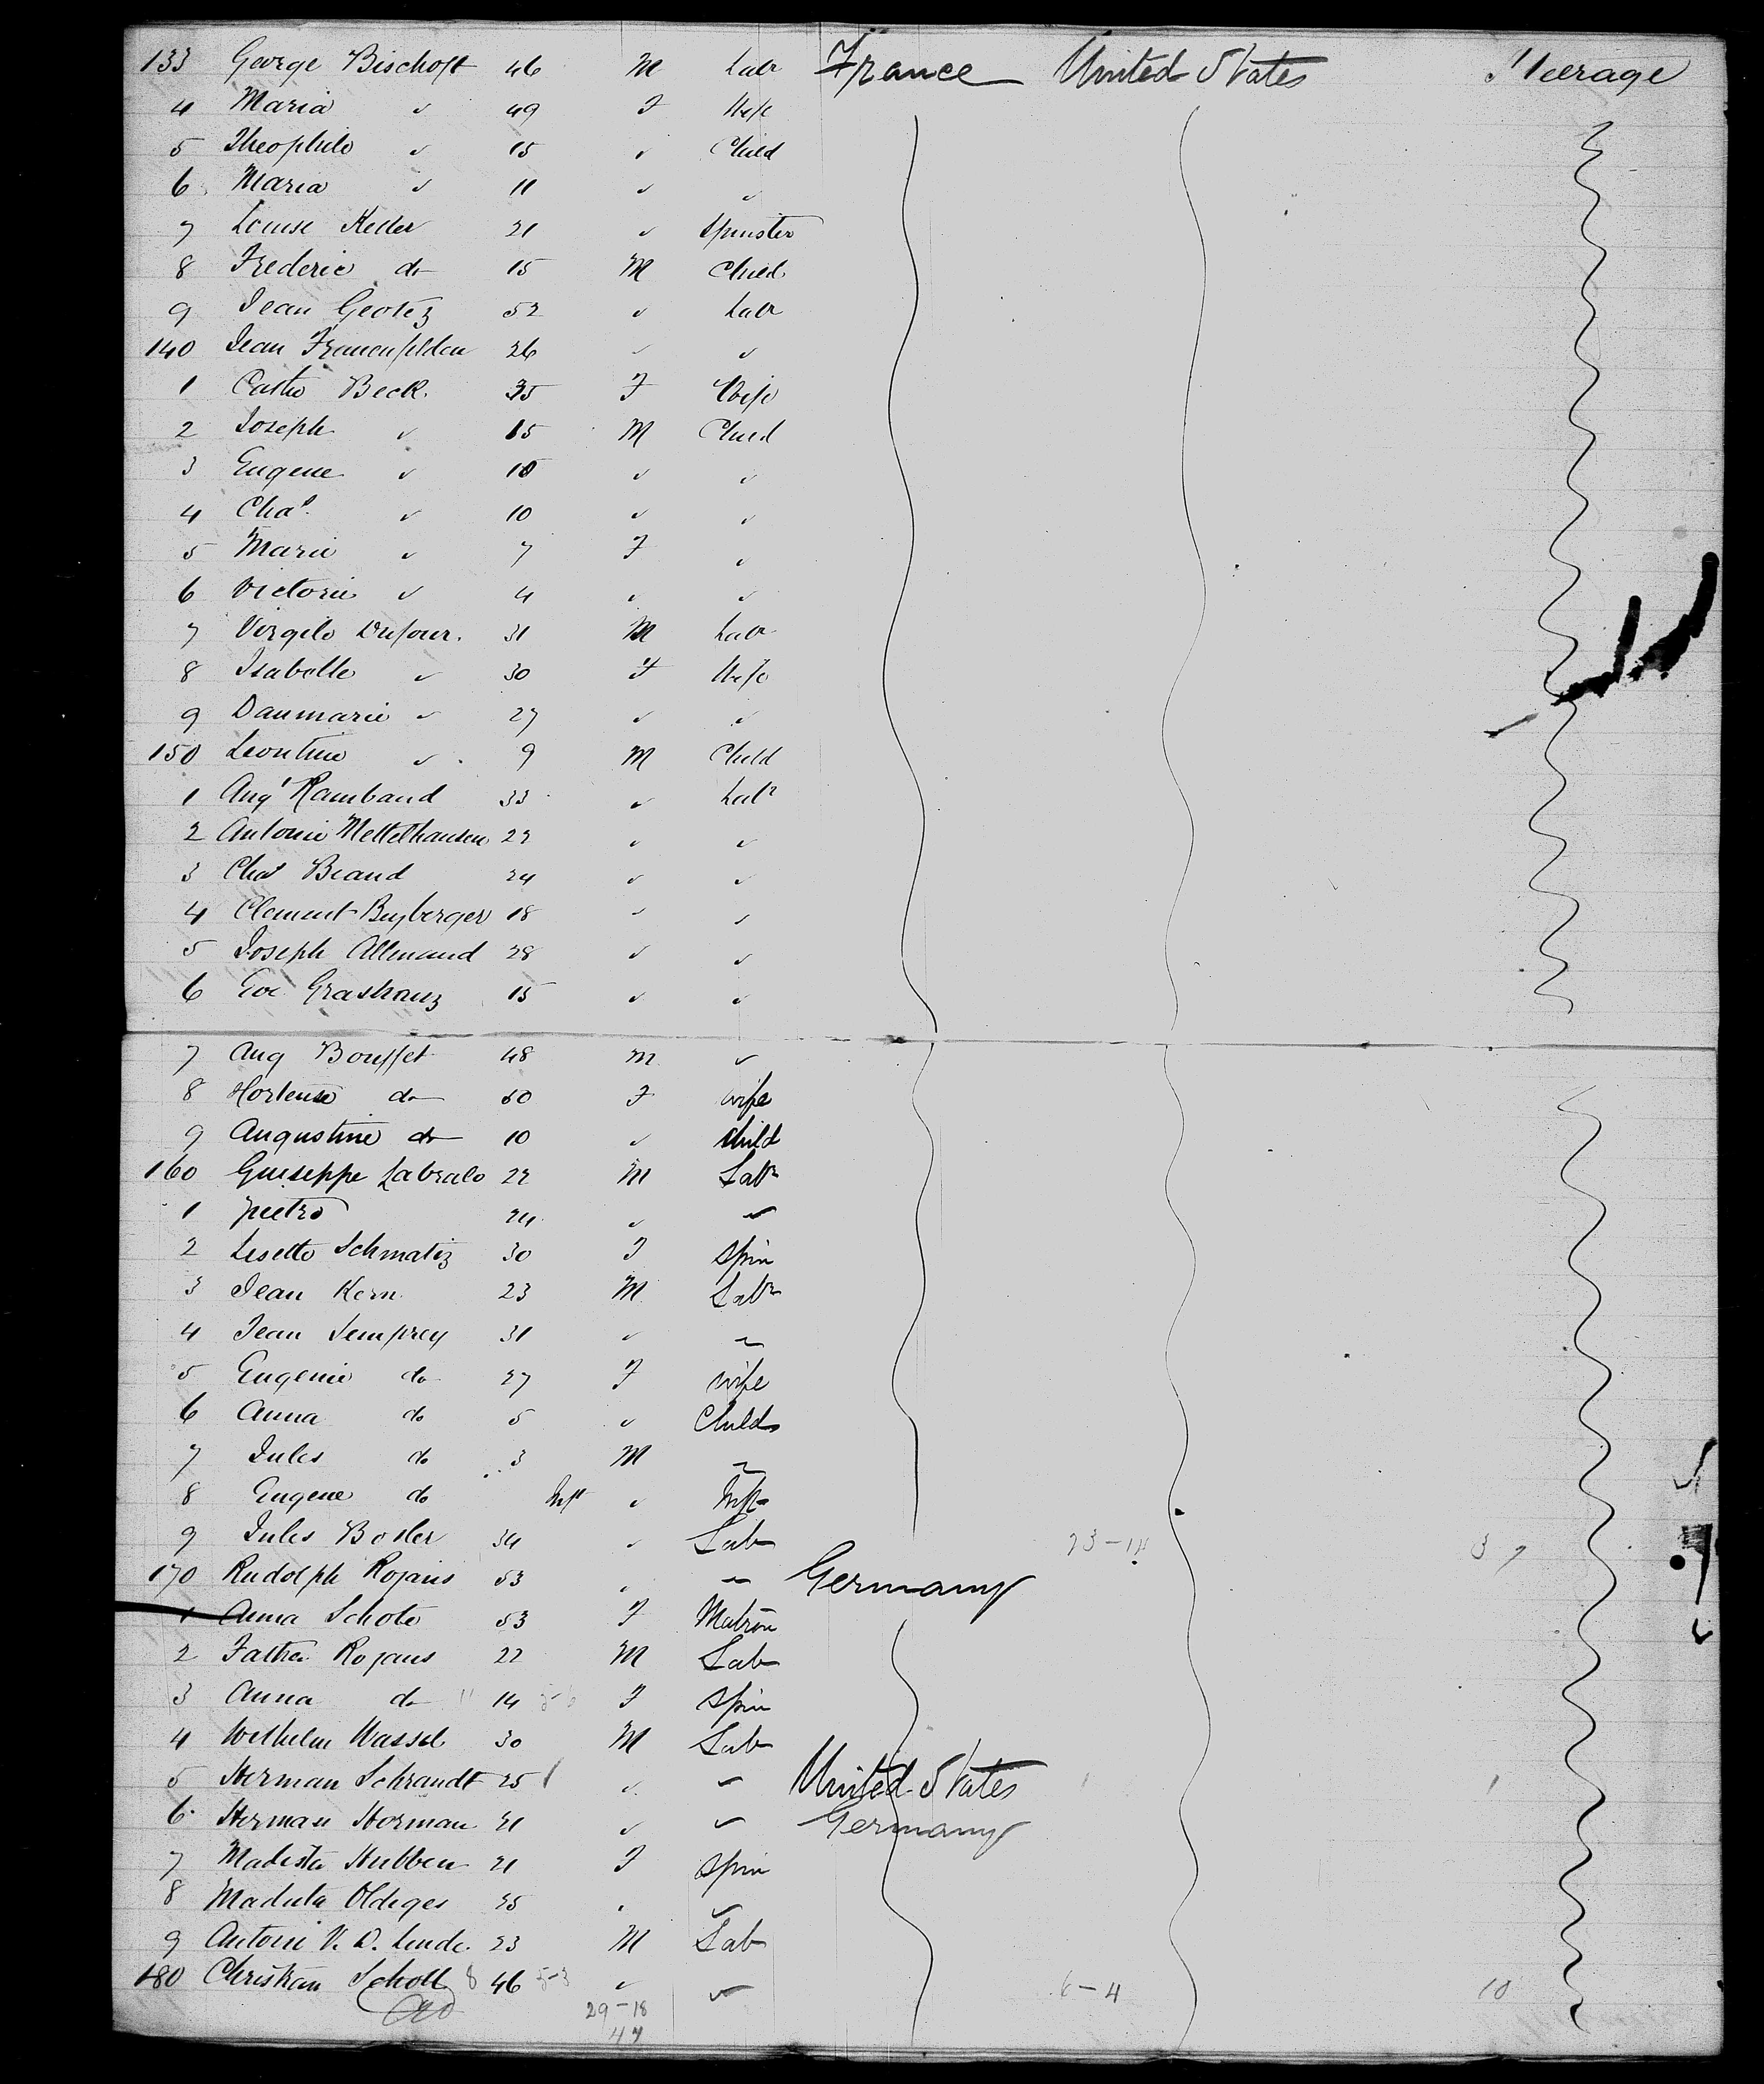 133 George Bischoff 46 M Labr France United States Steerage
4 Maria ✓ 49 F Wife
5 Theophile ✓ 15 ✓ Child
6 Maria ✓ 11 ✓ ✓
7 Louise Keller 21 ✓ Spinster
8 Frederic do 15 M Child
9 Jean Geotez 52 ✓ Labr
140 Jean 26 ✓ ✓
1 Beck 35 F Wife
2 Joseph ✓ 15 M Child
3 Eugene ✓ ✓ ✓
4 Chas ✓ 10 ✓ ✓
5 Marie ✓ 7 F ✓
6 Victorie ✓ 4 ✓ ✓
7 Virgile Dufour. 31 M Labr
8 Isabelle ✓ 30 F Wife
9 Danmarie ✓ 27 ✓ ✓
150 Leontine ✓ 9 M Child
1 Augt Rambaud 33 ✓ Labr
2 Antonie Mettelhausen 22 ✓ ✓
3 Chas Beaud 24 ✓ ✓
4 Clement Buyberger 18 ✓ ✓
5 Joseph Allemand 28 ✓ ✓
6 15 ✓ ✓
7 Aug Bouffet 48 M ✓
8 Hortense do 50 F wife
9 Augustine do 10 ✓ child
160 Guiseppe Labralo 22 M Labr
1 Pietro 24 ✓ ✓
2 Lisette Schmatiz 30 F Spin
3 Jean Kern 23 M Labr
4 Jean Semprey 31 ✓ ✓
5 Eugenie do 27 F wife
6 Anna do 5 ✓ Child
7 Jules do 3 M ✓
8 Eugene do Inft ✓ Inft
9 Jules Bosler 34 ✓ Lab 23-14 37
170 Rudolph Rojans 53 ✓ ✓ Germany
1 Anna Schote 53 F Matron
2 Rojans 22 M Lab
3 Anna do 11 14 F Spin
4 Wilhelm Wassel 30 M Lab
5 Herman Schrandt 25 1 ✓ ✓ United States 1 1
6 Herman Horman 21 ✓ ✓ Germany
7 Hubben 21 F Spin
8 Oldeges 25 ✓ ✓
9 Antoni V. D. Linde. 23 M Lab
180 Christian Scholl 8 46 5-3 ✓ ✓ 6-4 10
29-18
47